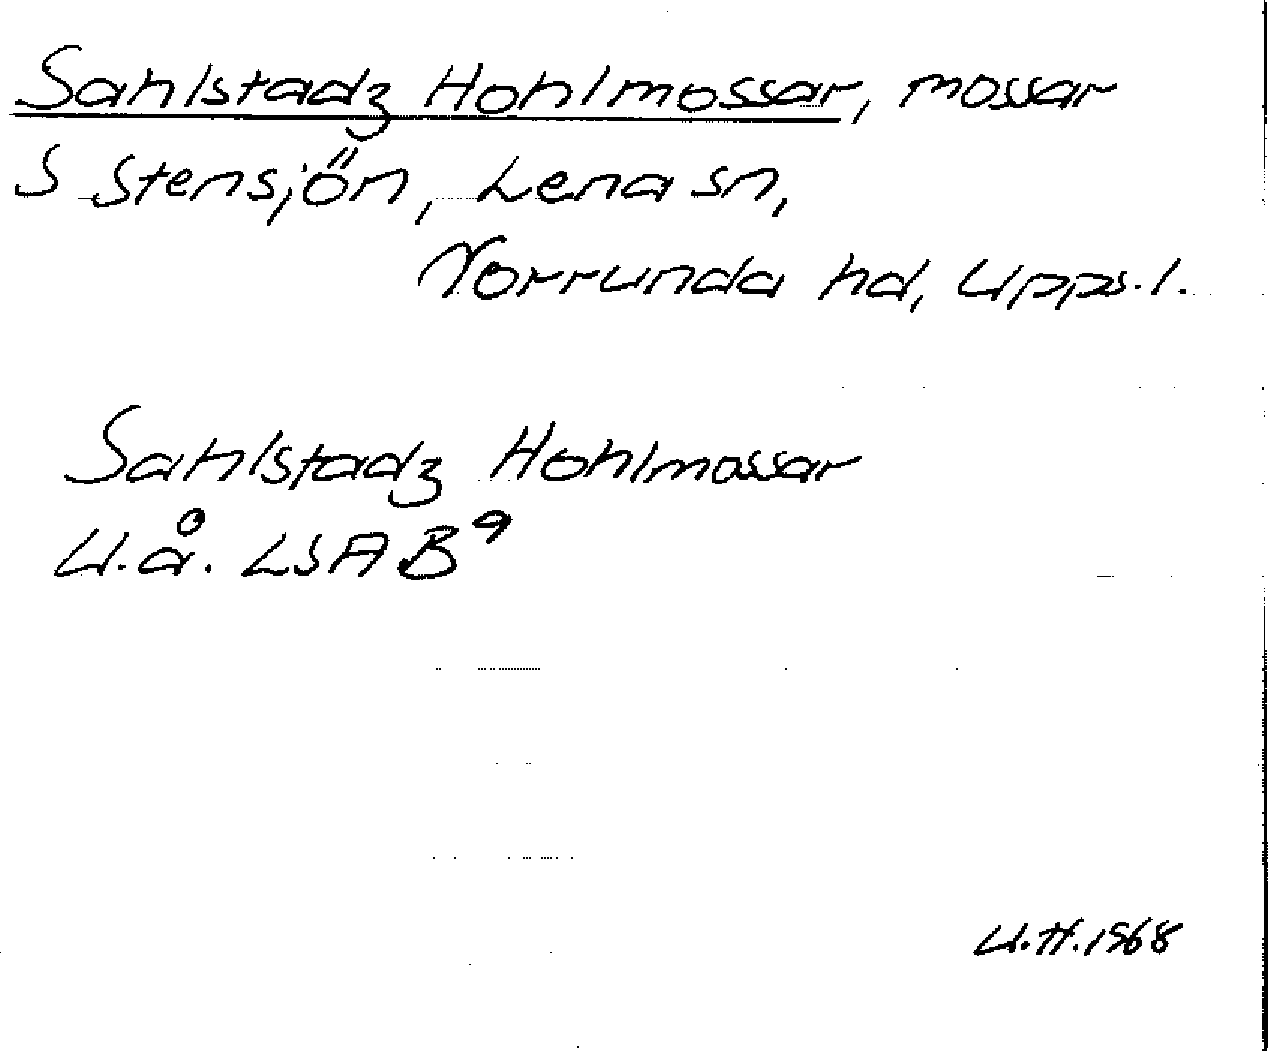 Sahlstadz Hohlmossar, mossar
S Stensjön, Lena sn,
Norrunda hd, Upps. l.
Sahlstadz Hohlmossar
U.å. LSA B⁹
U.H. 1968